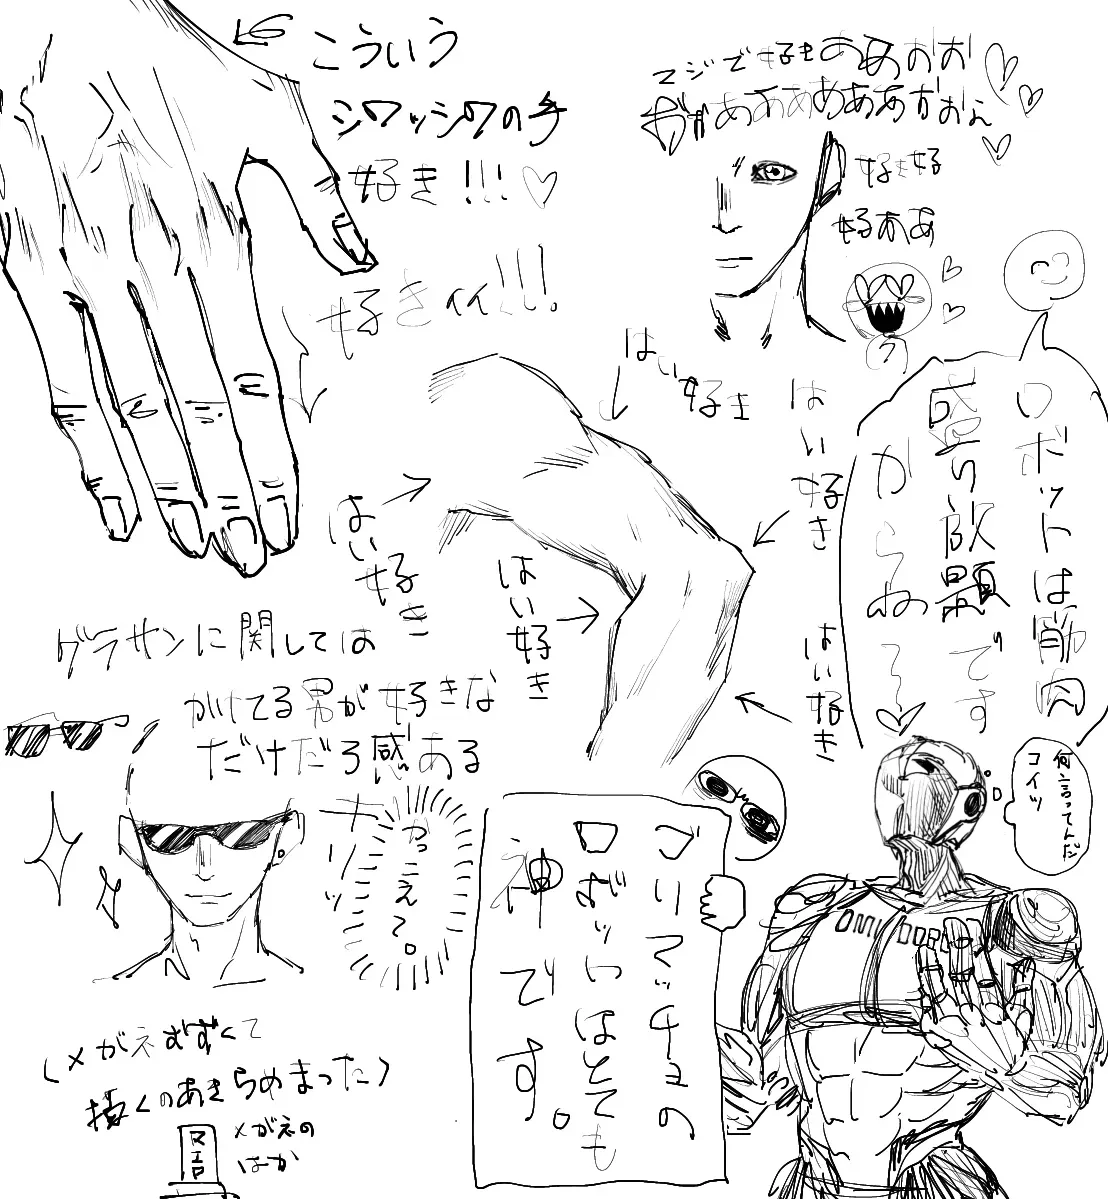 こういう
シワッシワの手
好き!!!♡
好きィィ!!!
マジで好きああおお
おがあああああああがおん
好き好
好ああ
はい好き
はい好き
はい好き
はい好き
はい好き
ロボットは筋肉
盛り放題です
からね~♡
グラサンに関しては
かけてる男が好きな
だけだろ感ある
キリッ
かっこえて。
(メガネむずくて
描くのあきらめまった)
メガネの
はか
RIP
ゴリマッチョの
ロボットはとても
神です。
何言ってんだ
コイツ